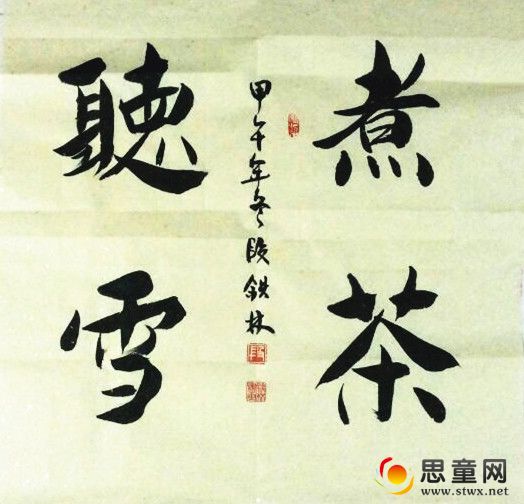 煮茶
聽雪
甲午年冬段鉄林
思童网
www.stwx.net